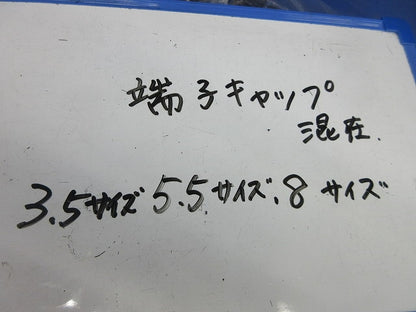 端子キャップ
混在.
3.5サイズ 5.5サイズ.8サイズ